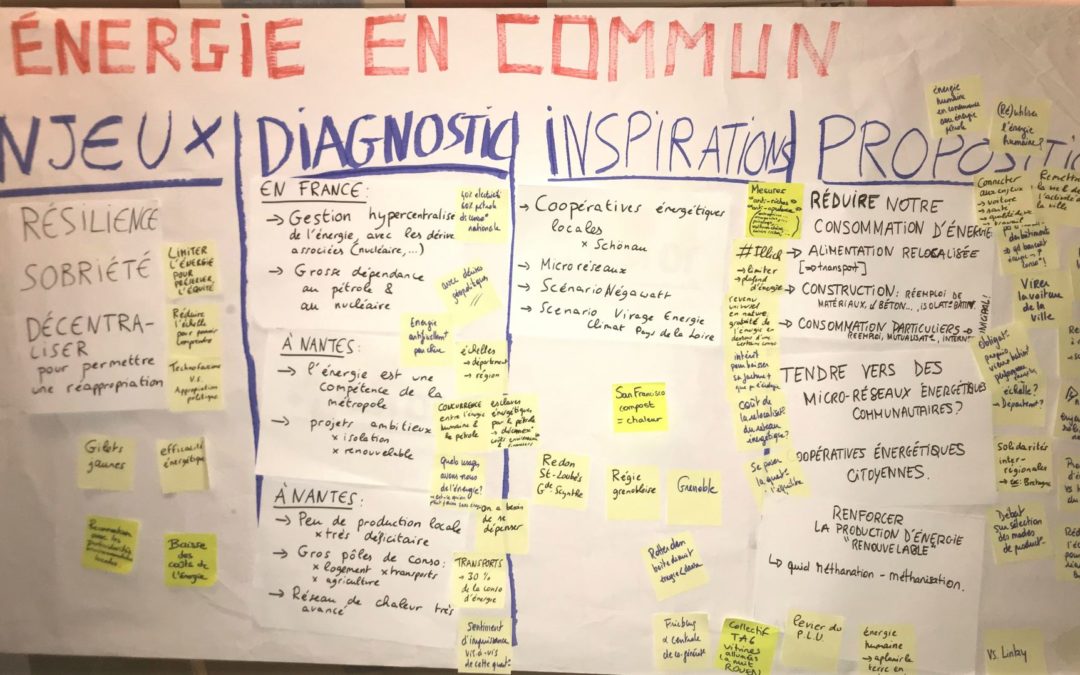 ÉNERGIE EN COMMUN
NJEUX
RÉSILIENCE
SOBRIÉTÉ
DÉCENTRA-
LISER
pour permettre
une réappropriation
LIMITER
L'ÉNERGIE
POUR
PRÉSERVER
L'ÉQUITÉ
Réduire
l'échelle
pour pouvoir
comprendre
Technofascisme
V.S.
Appropriation
politique
Gilets
jaunes
efficacité
énergétique
Baisse
des
coûts de
l'Énergie
DIAGNOSTIC
EN FRANCE:
→ Gestion hypercentralisé
de l'énergie, avec les dérive
associées (nucléaire,...)
→ Grosse dépendance
au pétrole &
au nucléaire
40% électricité
60% pétrole
nationale
avec dérives
géopolitiques
Energie
artificiellemt
peu chère
À NANTES:
→ l'énergie est une
compétence de la
métropole
→ projets ambitieux
x isolation
x renouvelable
échelles
→ département
→ région
CONCURRENCE
entre l'énergie
humaine &
le pétrole
esclaves
énergétiques
par le pétrole
Quels usages
avons nous
de l'énergie?
On a besoin
de se
dépenser
À NANTES:
→ Peu de production locale
x très déficitaire
→ Gros pôles de conso:
x logement x transports
x agriculture
→ Réseau de chaleur très
avancé
TRANSPORTS
→ 30%
de la conso
d'énergie
Sentiment
d'impuissance
vis-à-vis
de cette quest°
INSPIRATIONS
→ Coopératives énergétiques
locales
x Schönau
→ Microréseaux
→ Scénario Négawatt
→ Scenario Virage Energie
Climat Pays de la Loire
San Francisco
compost
= chaleur
Redon
St-Loubès
Régie
grenobloise
Grenoble
Collectif
TAG
vitrines
allumées
la nuit
ROUEN
PROPOSITIO
énergie
humaine
en concurrence
avec énergie
pétrole
(Ré)utiliser
l'énergie
humaine?
Mesures
"anti-riches"
#Illich
→ limiter
plafond
d'énergie
revenu
universel
en nature,
gratuité de
l'énergie en
dessous d'une
certaine conso
intérêt
pour baisser
sa facture +
que pr écologie
coût de
la relocalisat°
du réseau
énergétique?
Se poser
la quest°
l'équilibre
RÉDUIRE NOTRE
CONSOMMATION D'ÉNERGIE
→ ALIMENTATION RELOCALISÉE
[⇒ transport]
→ CONSTRUCTION: RÉEMPLOI DE
MATÉRIAUX, Ø BÉTON..., ISOLAT° BÂTIM.
→ CONSOMMATION PARTICULIERS →
RÉEMPLOI, MUTUALISAT°, INTERN
TENDRE VERS DES
MICRO-RÉSEAUX ÉNERGÉTIQUES
COMMUNAUTAIRES?
COOPÉRATIVES ÉNERGÉTIQUES
CITOYENNES.
RENFORCER
LA PRODUCTION D'ÉNERGIE
"RENOUVELABLE"
↳ quid méthanation - méthanisation.
Connecter
aux enjeux
→ voiture
→ santé
→ qualité de vie
→ travail
Remettre
la vie &
l'activité
la ville
Virer
la voiture
de la
ville
échelle?
→ Département?
Solidarités
inter-
régionales
→ ex: Bretagne
Débat
sur sélection
des modes
de product°.
levier du
P.L.U
énergie
humaine
→ aplanir la
terre en
vs. Linky